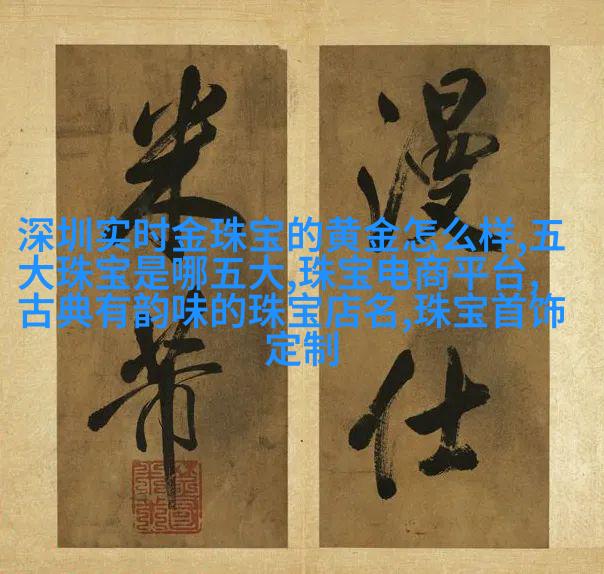 漫仕
米芾
深圳实时金珠宝的黄金怎么样,五
大珠宝是哪五大,珠宝电商平台,
古典有韵味的珠宝店名,珠宝首饰
定制